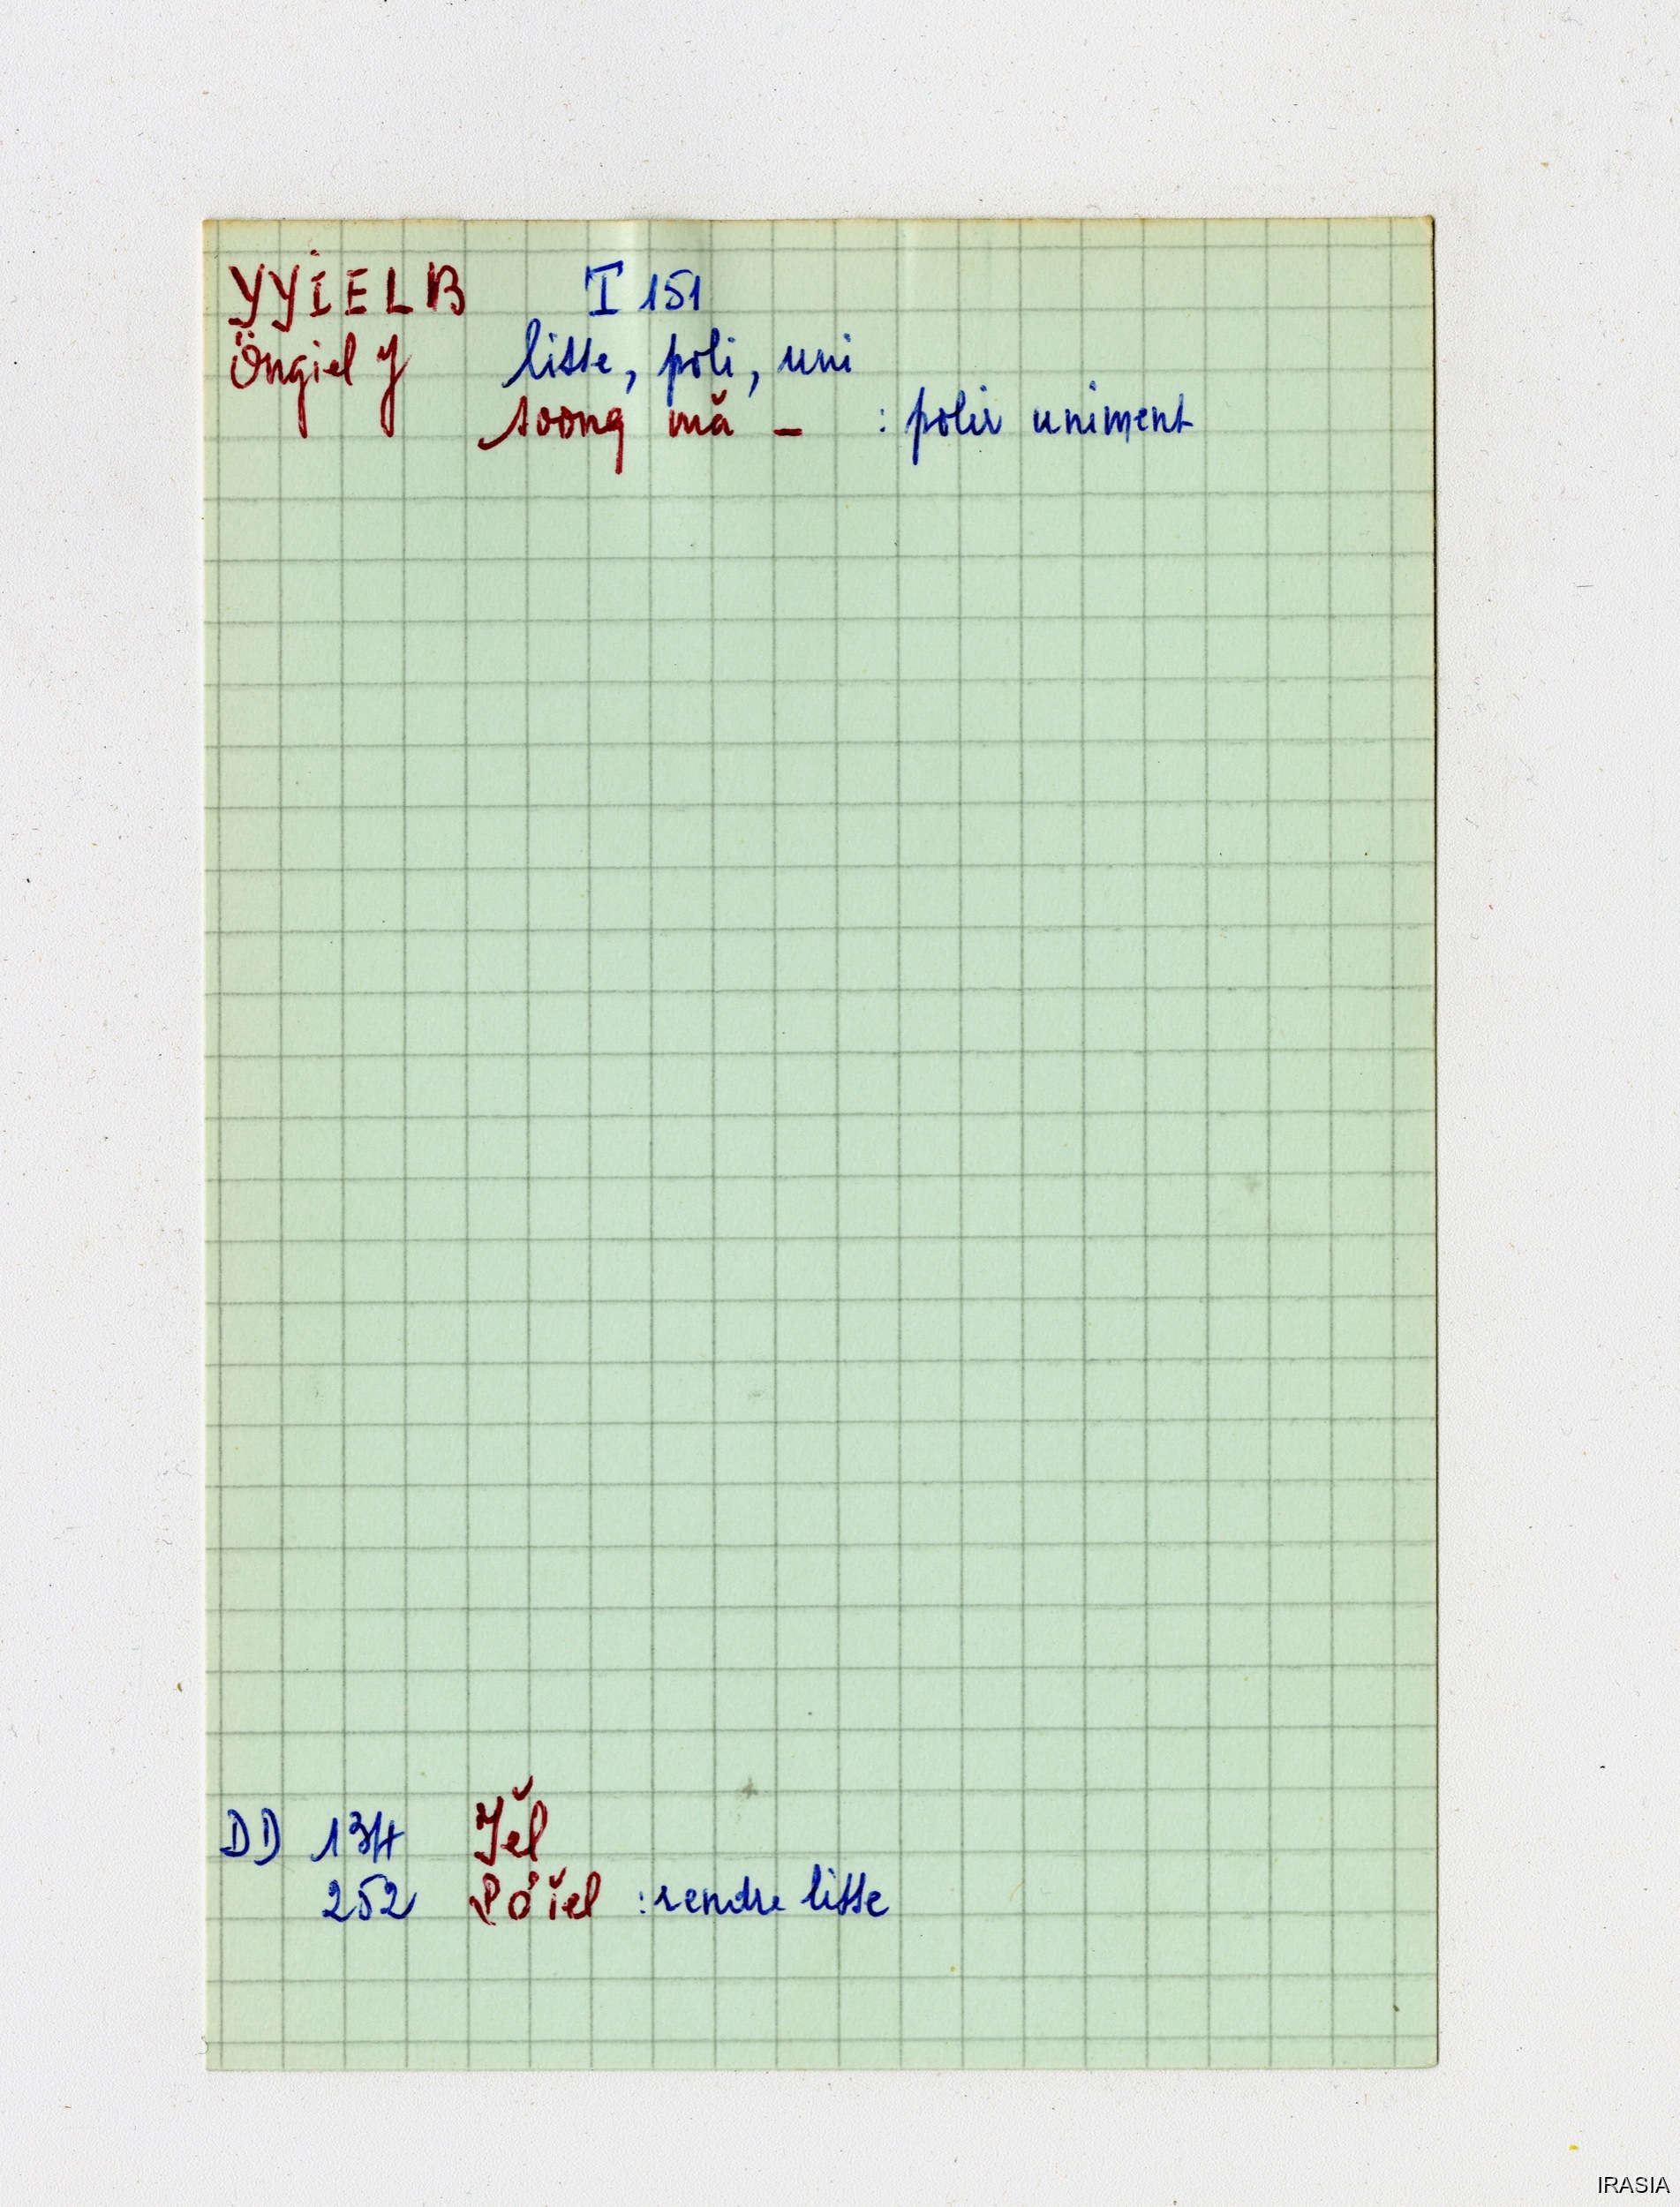 YYIELB I 151
Öngiel Y lisse, poli, uni
soong mă _ : polir uniment
DD 134 Yĕl
252 Pơ̆iel : rendre lisse
IRASIA